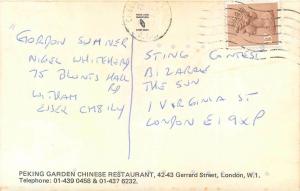 GORDON SUMNER
NIGEL WHITEHEAD
75 BLUNTS HALL
RD
WITHAM
ESSEX CM8 1LY
STING CONTEST
BIZARRE
THE SUN
1 VIRGINIA ST
LONDON E1 9XP
PEKING GARDEN CHINESE RESTAURANT, 42-43 Gerrard Street, London, W.1.
Telephone: 01-439 0458 & 01-437 6232.